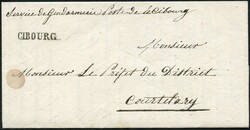 Service de Gendarmerie Poste de la Cibourg
CIBOURG
Monsieur
Monsieur Le Préfet du District
Courtelary